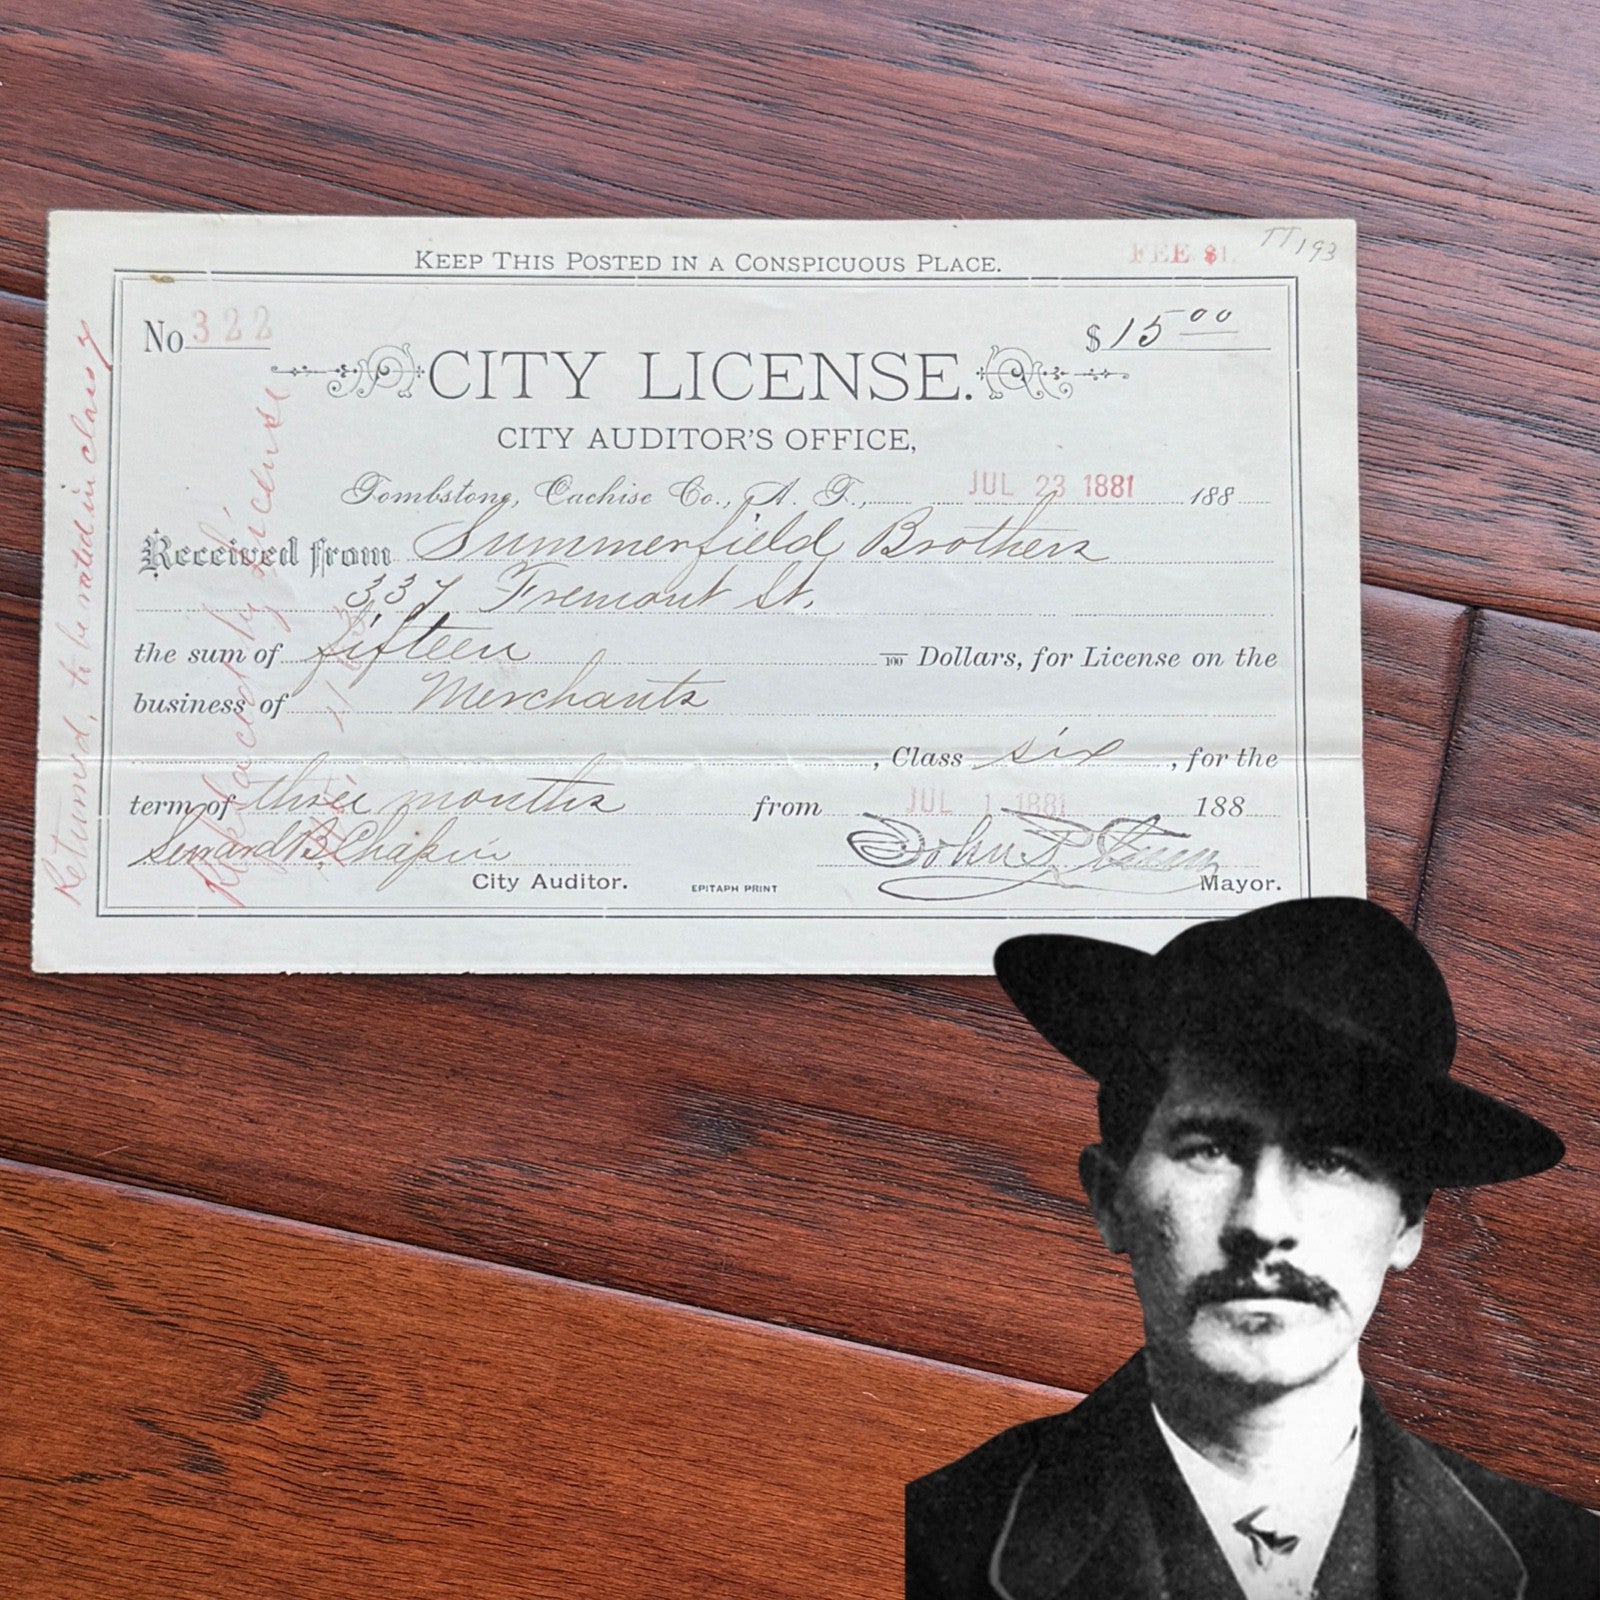 KEEP THIS POSTED IN A CONSPICUOUS PLACE.
FEE $1.
TT193
No 322
$15 00
CITY LICENSE.
CITY AUDITOR'S OFFICE,
Tombstone, Cachise Co., A. T., JUL 23 1881 188
Received from Summerfield Brothers
337 Fremont St.
the sum of fifteen /100 Dollars, for License on the
business of Merchants
, Class six, for the
term of three months from JUL 1 1881 188
Seward B. Chapin John P. Clum
City Auditor. EPITAPH PRINT Mayor.
Returned, to be rated in class 7
Replaced by License